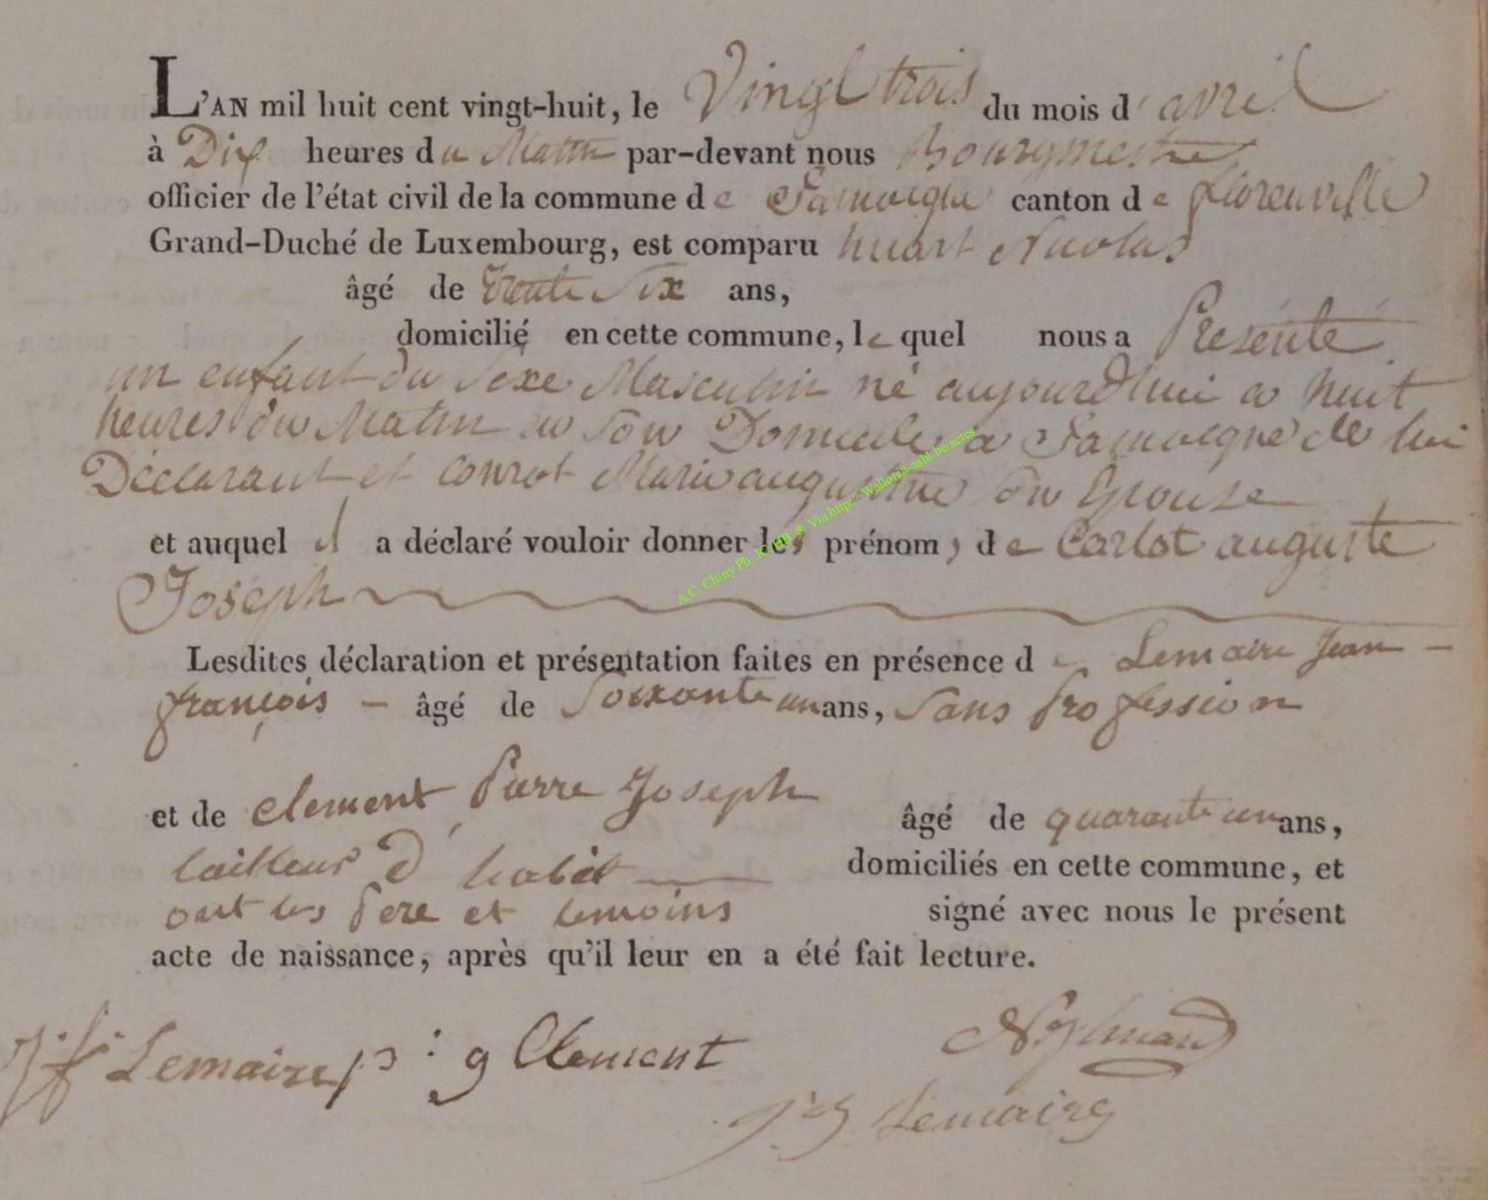 L'AN mil huit cent vingt-huit, le Vingt trois du mois d'avril
à Dix heures du Matin par-devant nous Bourgmestre
officier de l'état civil de la commune de Jamoigne canton de florenville
Grand-Duché de Luxembourg, est comparu huart Nicolas
âgé de trente Six ans,
domicilié en cette commune, lequel nous a Présenté
un enfant du Sexe Masculin né aujourd'hui a huit
heures du Matin en Son Domicile a Jamoigne de lui
Déclarant et Conrot Marie augustine Son Epouse
et auquel il a déclaré vouloir donner les prénoms de Carlot auguste
Joseph
Lesdites déclaration et présentation faites en présence de Lemaire Jean
françois - âgé de Soixante un ans, Sans Profession
et de Clement Pierre Joseph âgé de quarante un ans,
tailleur d'habit domiciliés en cette commune, et
ont les Pere et temoins signé avec nous le présent
acte de naissance, après qu'il leur en a été fait lecture.
J. f. Lemaire p : g Clement
Lemaire
A.C. Chiny Ph. Via http:// Wallonia-asbl.be/actes